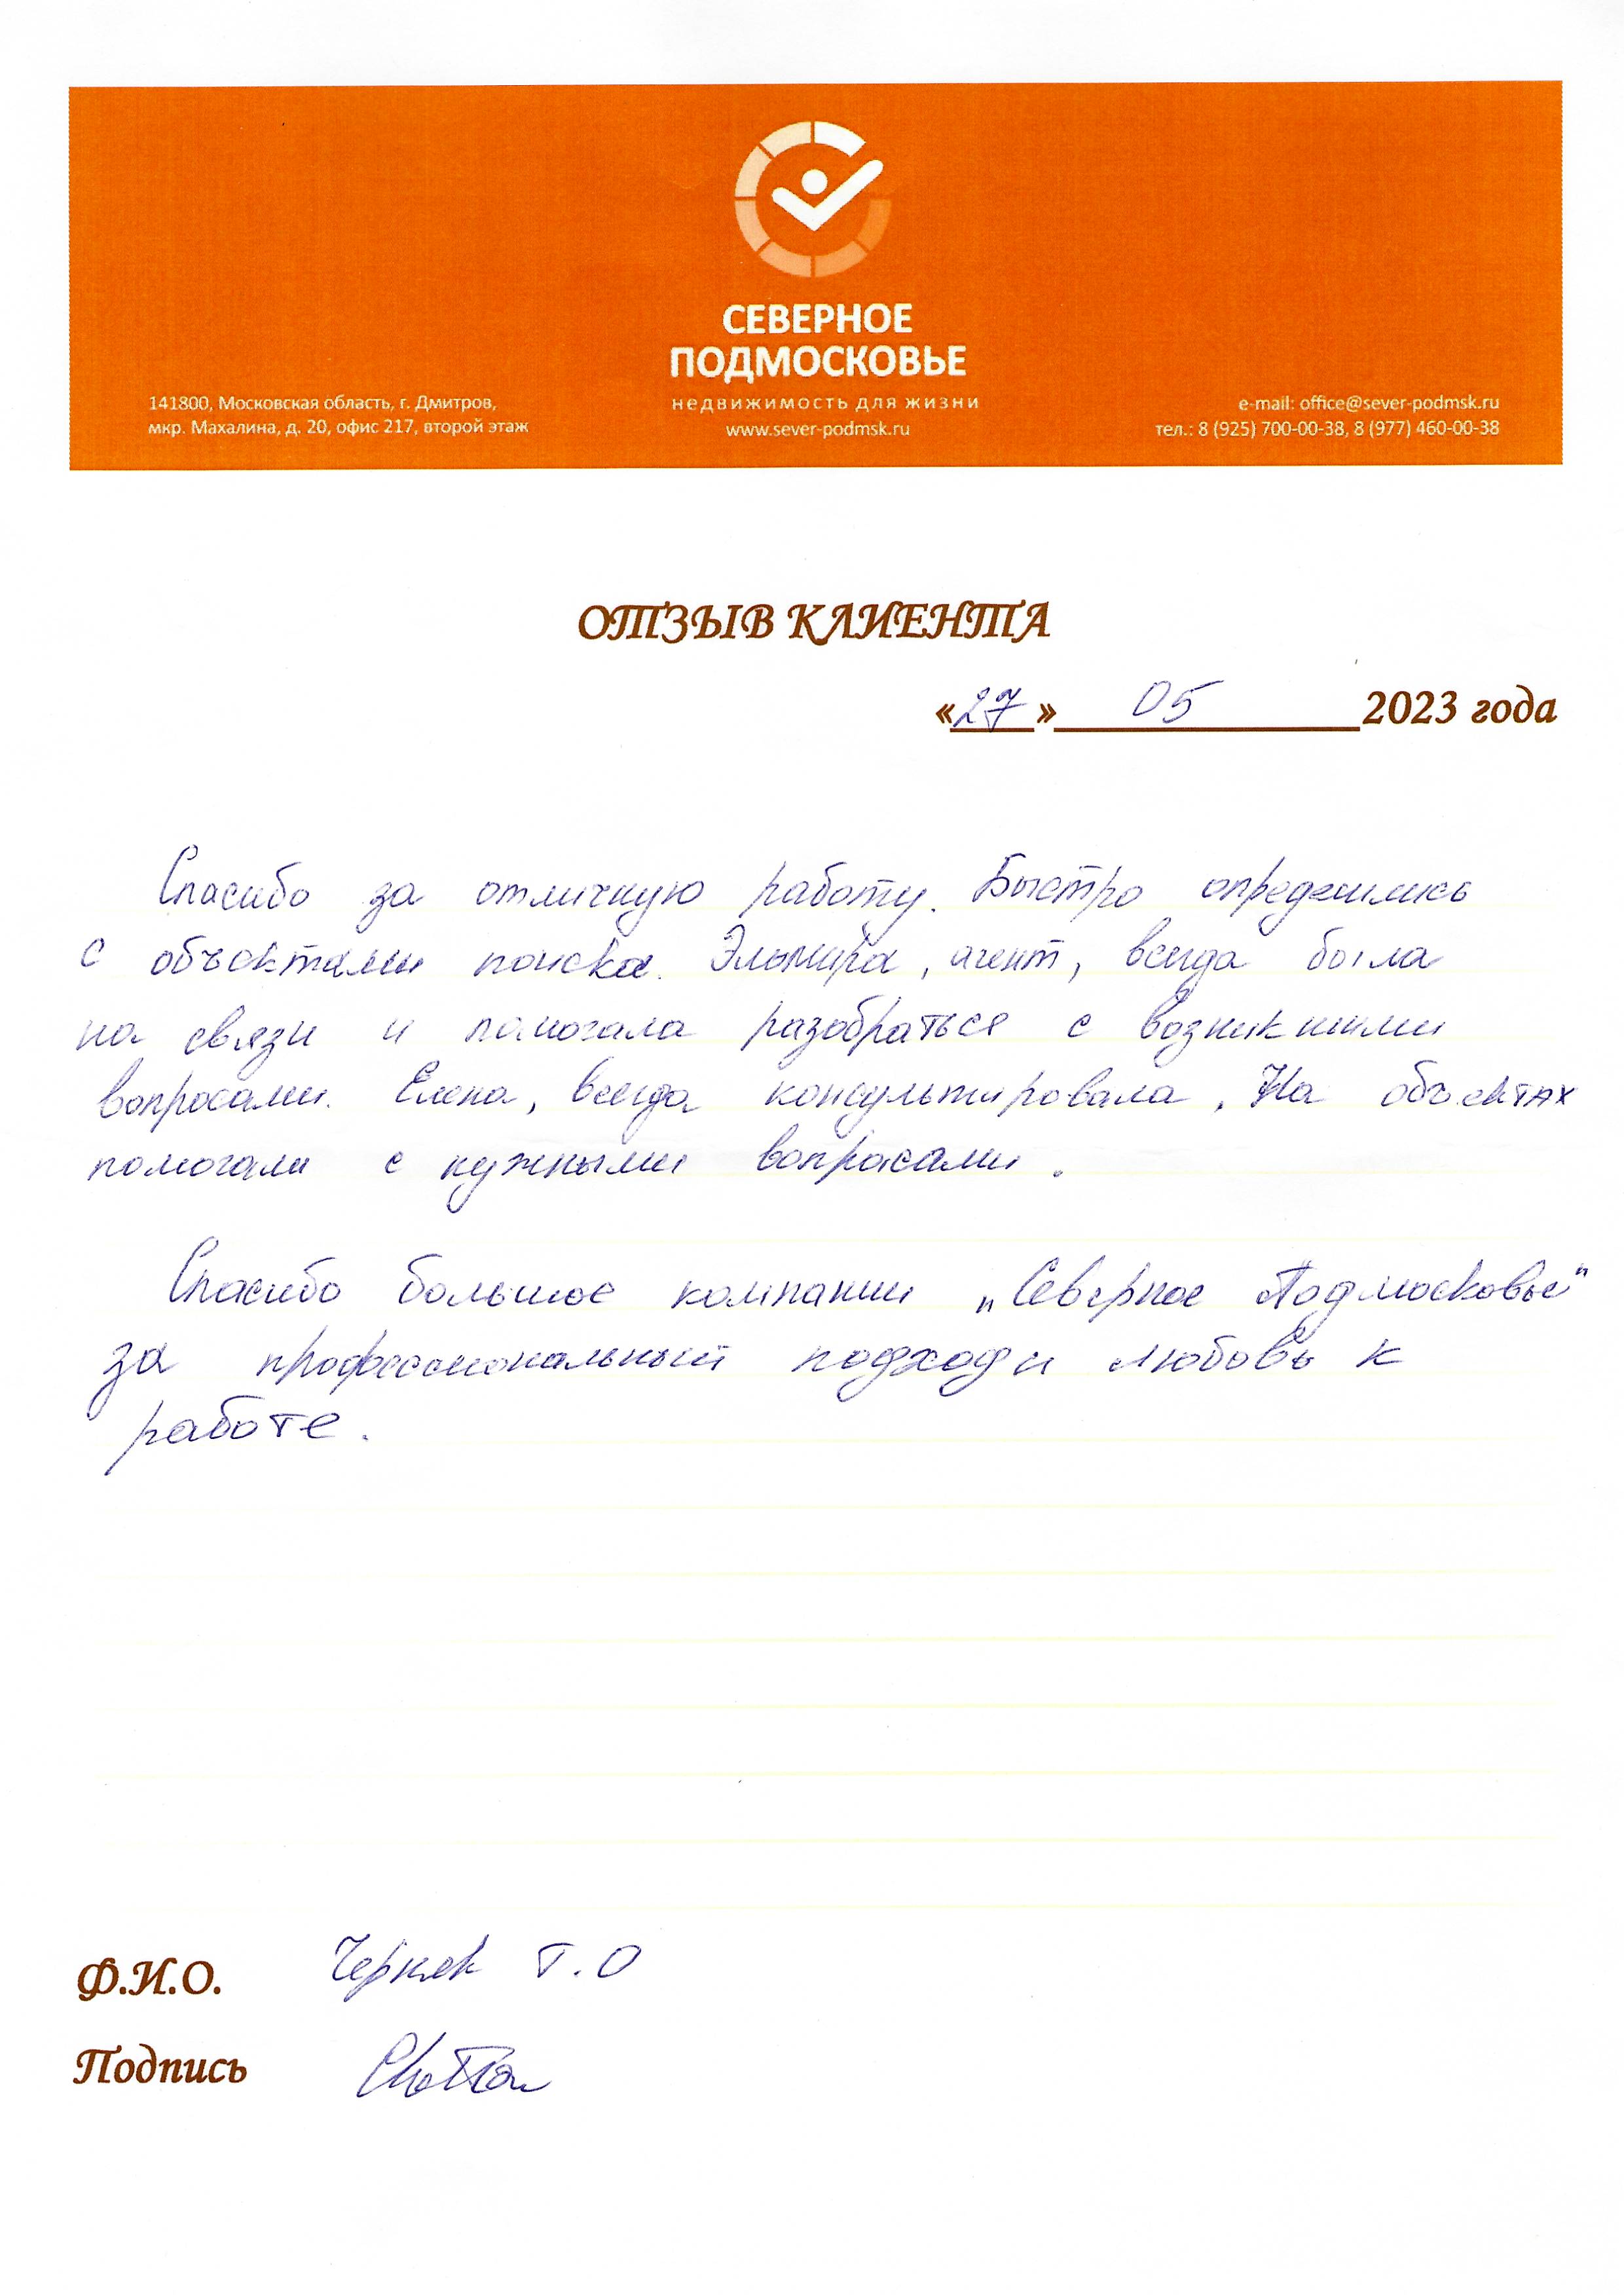 СЕВЕРНОЕ
ПОДМОСКОВЬЕ
недвижимость для жизни
www.sever-podmsk.ru
141800, Московская область, г. Дмитров,
мкр. Махалина, д. 20, офис 217, второй этаж
e-mail: office@sever-podmsk.ru
тел.: 8 (925) 700-00-38, 8 (977) 460-00-38
ОТЗЫВ КЛИЕНТА
«27» 05 2023 года
Спасибо за отличную работу. Быстро определились
с объектами поиска. Эльмира, агент, всегда была
на связи и помогала разобраться с возникшими
вопросами. Елена, всегда консультировала. На объектах
помогали с нужными вопросами.
Спасибо большое компании „Северное Подмосковье"
за профессиональный подход и любовь к
работе.
Ф.И.О. Т.О
Подпись